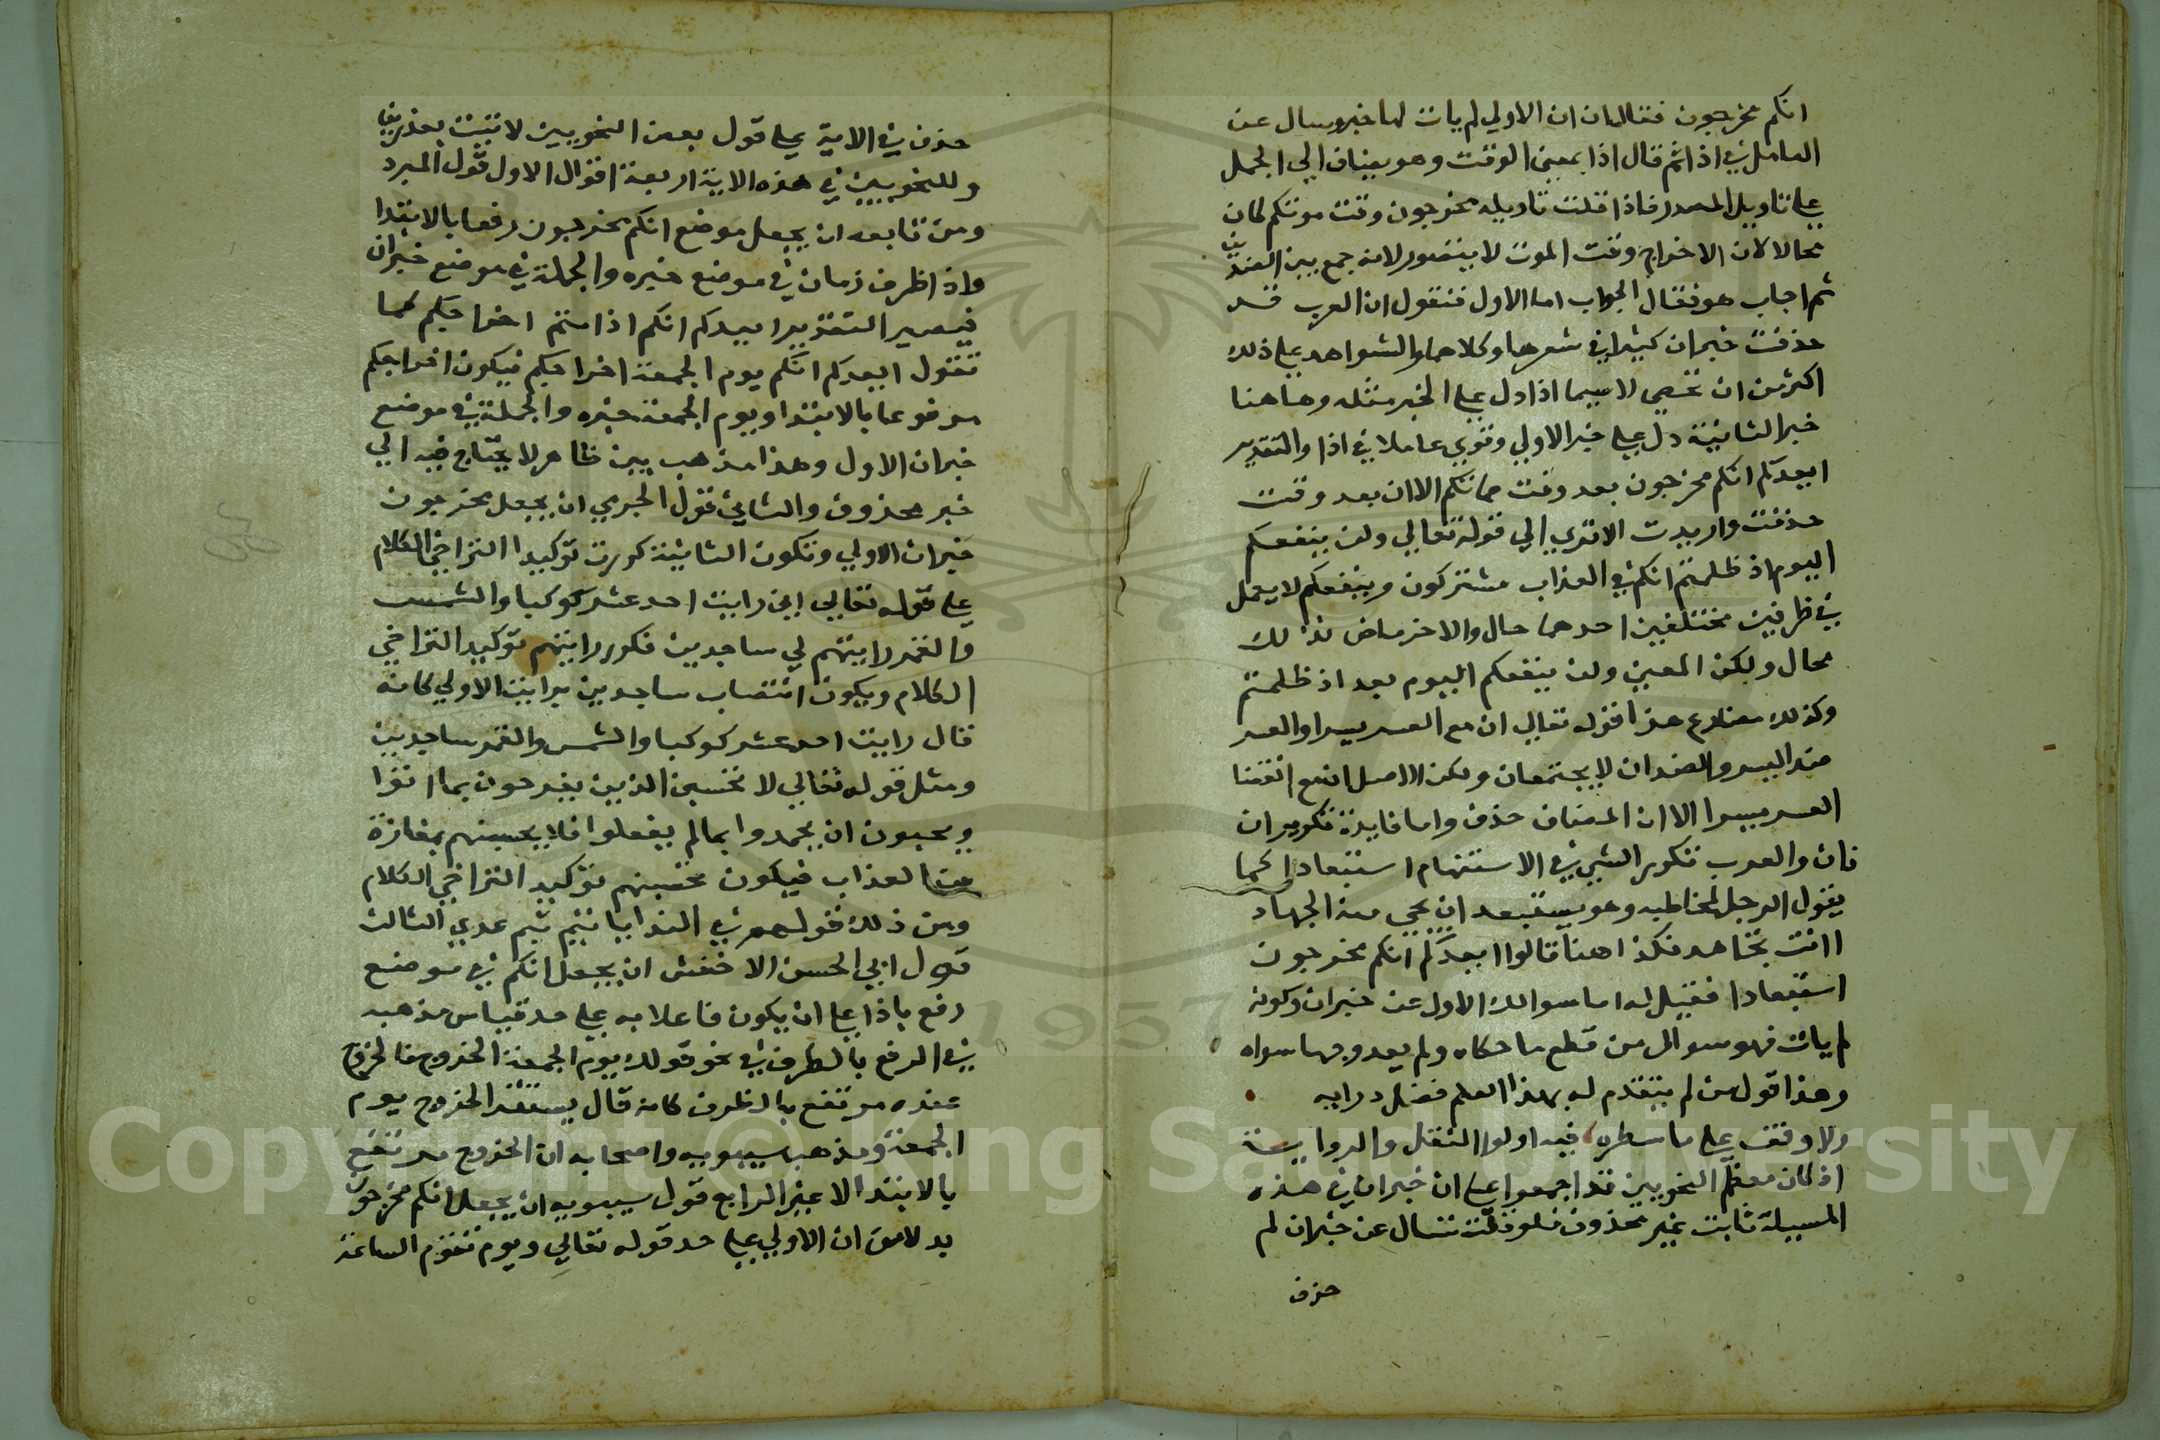 انكم مخرجون فقال ان الاولي لم يات لها خبر وسال عن
العامل في اذا ثم قال اذا بمعني الوقت وهو يضاف الي الجمل
علي تاويل المصدر فاذا قلت تاويله مخرجون وقت موتكم كان
محالا لان الاخراج وقت الموت لا يتصور لانه جمع بين الضدين
ثم اجاب هو فقال الجواب اما الاول فنقول ان العرب قد
حذفت خبران كثيرا في شعرها وكلامها والشواهد علي ذلك
اكثر من ان تحصي لا سيما اذا دل علي الخبر مثله وهاهنا
خبر الثانية دل علي خبر الاولي ونوي عاملا في اذا والتقدير
ايعدكم انكم مخرجون بعد وقت مماتكم الا ان بعد وقت
حذفت واريدت الا تري الي قوله تعالي ولن ينفعكم
اليوم اذ ظلمتم انكم في العذاب مشتركون وينفعكم لا يعمل
في ظرفين مختلفين احدهما حال والاخر ماض لذلك
محال ولكن المعني ولن ينفعكم اليوم بعد اذ ظلمتم
وكذلك مضارع هذا قوله تعالي ان مع العسر يسرا والعسر
ضد اليسر والضدان لا يجتمعان ولكن الاصل ان مع انقضا
العسر يسرا الا ان المضاف حذف واما فايدة تكرير ان
فان والعرب تكرر الشي في الاستفهام استبعادا كما
يقول الرجل لمخاطبه وهو يستبعد ان يجي منه الجهاد
اانت تجاهد فكذا هنا قالوا ايعدكم انكم مخرجون
استبعادا فقيل له اما سوالك الاول عن خبران وكونه
لم يات فهو سوال من قطع ما حكاه ولم يعد وجها سواه
وهذا قول من لم يتقدم له بهذا العلم فضل درايه
ولا وقف علي ما سطره فيه اولوا النقل والرواية
اذ كان معظم النحويين قد اجمعوا علي ان خبران في هذه
المسيلة ثابت غير محذوف فلو قلت تسال عن خبران لم
حذف
حذف في الاية علي قول بعض النحويين لا تثبت بعذرين
وللنحويين في هذه الاية اربعة اقوال الاول قول المبرد
ومن تابعه ان يجعل موضع انكم مخرجون رفعا بالابتدا
واذا ظرف زمان في موضع خبره والجملة في موضع خبران
فيصير التقدير ايعدكم انكم اذا متم اخراجكم كما
تقول ايعدكم انكم يوم الجمعة اخراجكم فيكون اخراجكم
مرفوعا بالابتدا ويوم الجمعة خبره والجملة في موضع
خبران الاول وهذا مذهب بين ظاهر لا يحتاج فيه الي
خبر محذوف والثاني قول الجرمي ان يجعل مخرجون
خبران الاولي وتكون الثانية كررت توكيدا لتراخي الكلام
علي قوله تعالي اني رايت احد عشر كوكبا والشمس
والقمر رايتهم لي ساجدين فكرر رايتهم توكيدا لتراخي
الكلام ويكون انتصاب ساجدين برايت الاولي كانه
قال رايت احد عشر كوكبا والشمس والقمر ساجدين
ومثل قوله تعالي لا تحسبن الذين يفرحون بما اتوا
ويحبون ان يحمدوا بما لم يفعلوا فلا يحسبنهم بمفازة
من العذاب فيكون تحسبنهم توكيد التراخي الكلام
ومن ذلك قولهم في الندا يا تيم تيم عدي الثالث
قول ابي الحسن الاخفش ان يجعل انكم في موضع
رفع باذا علي ان يكون فاعلا به علي حد قياس مذهبه
في الرفع بالظرف في نحو قولك يوم الجمعة الخروج فالخروج
عنده مرتفع بالظرف كانه قال يستقر الخروج يوم
الجمعة ومذهب سيبويه واصحابه ان الخروج مرتفع
بالابتدا لا غير الرابع قول سيبويه ان يجعل انكم مخرجون
بدلا من ان الاولي علي حد قوله تعالي ويوم تقوم الساعة
1957
Copyright © King Saud University